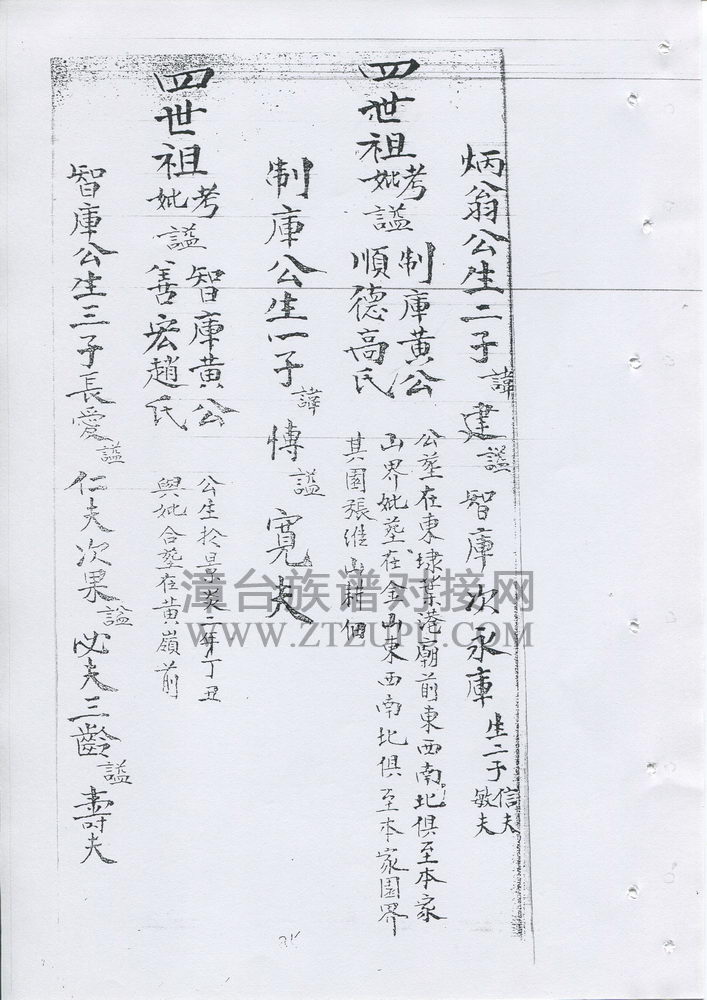 炳翁公生二子諱建謚智庫次永庫生二子信夫敏夫
四世祖考妣謚制庫黃公順德高氏
公塟在東埭業港廟前東西南北俱至本家
山界妣塟在金山東西南北俱至本家園界
其園張淮山耕佃
制庫公生一子諱愽謚寬夫
四世祖考妣謚智庫黃公善宏趙氏
公生於景炎二年丁丑
與妣合塟在黃嶺前
智庫公生三子長愛謚仁夫次果謚必夫三齡謚壽夫
漳台族谱对接网
WWW.ZTZUPU.COM